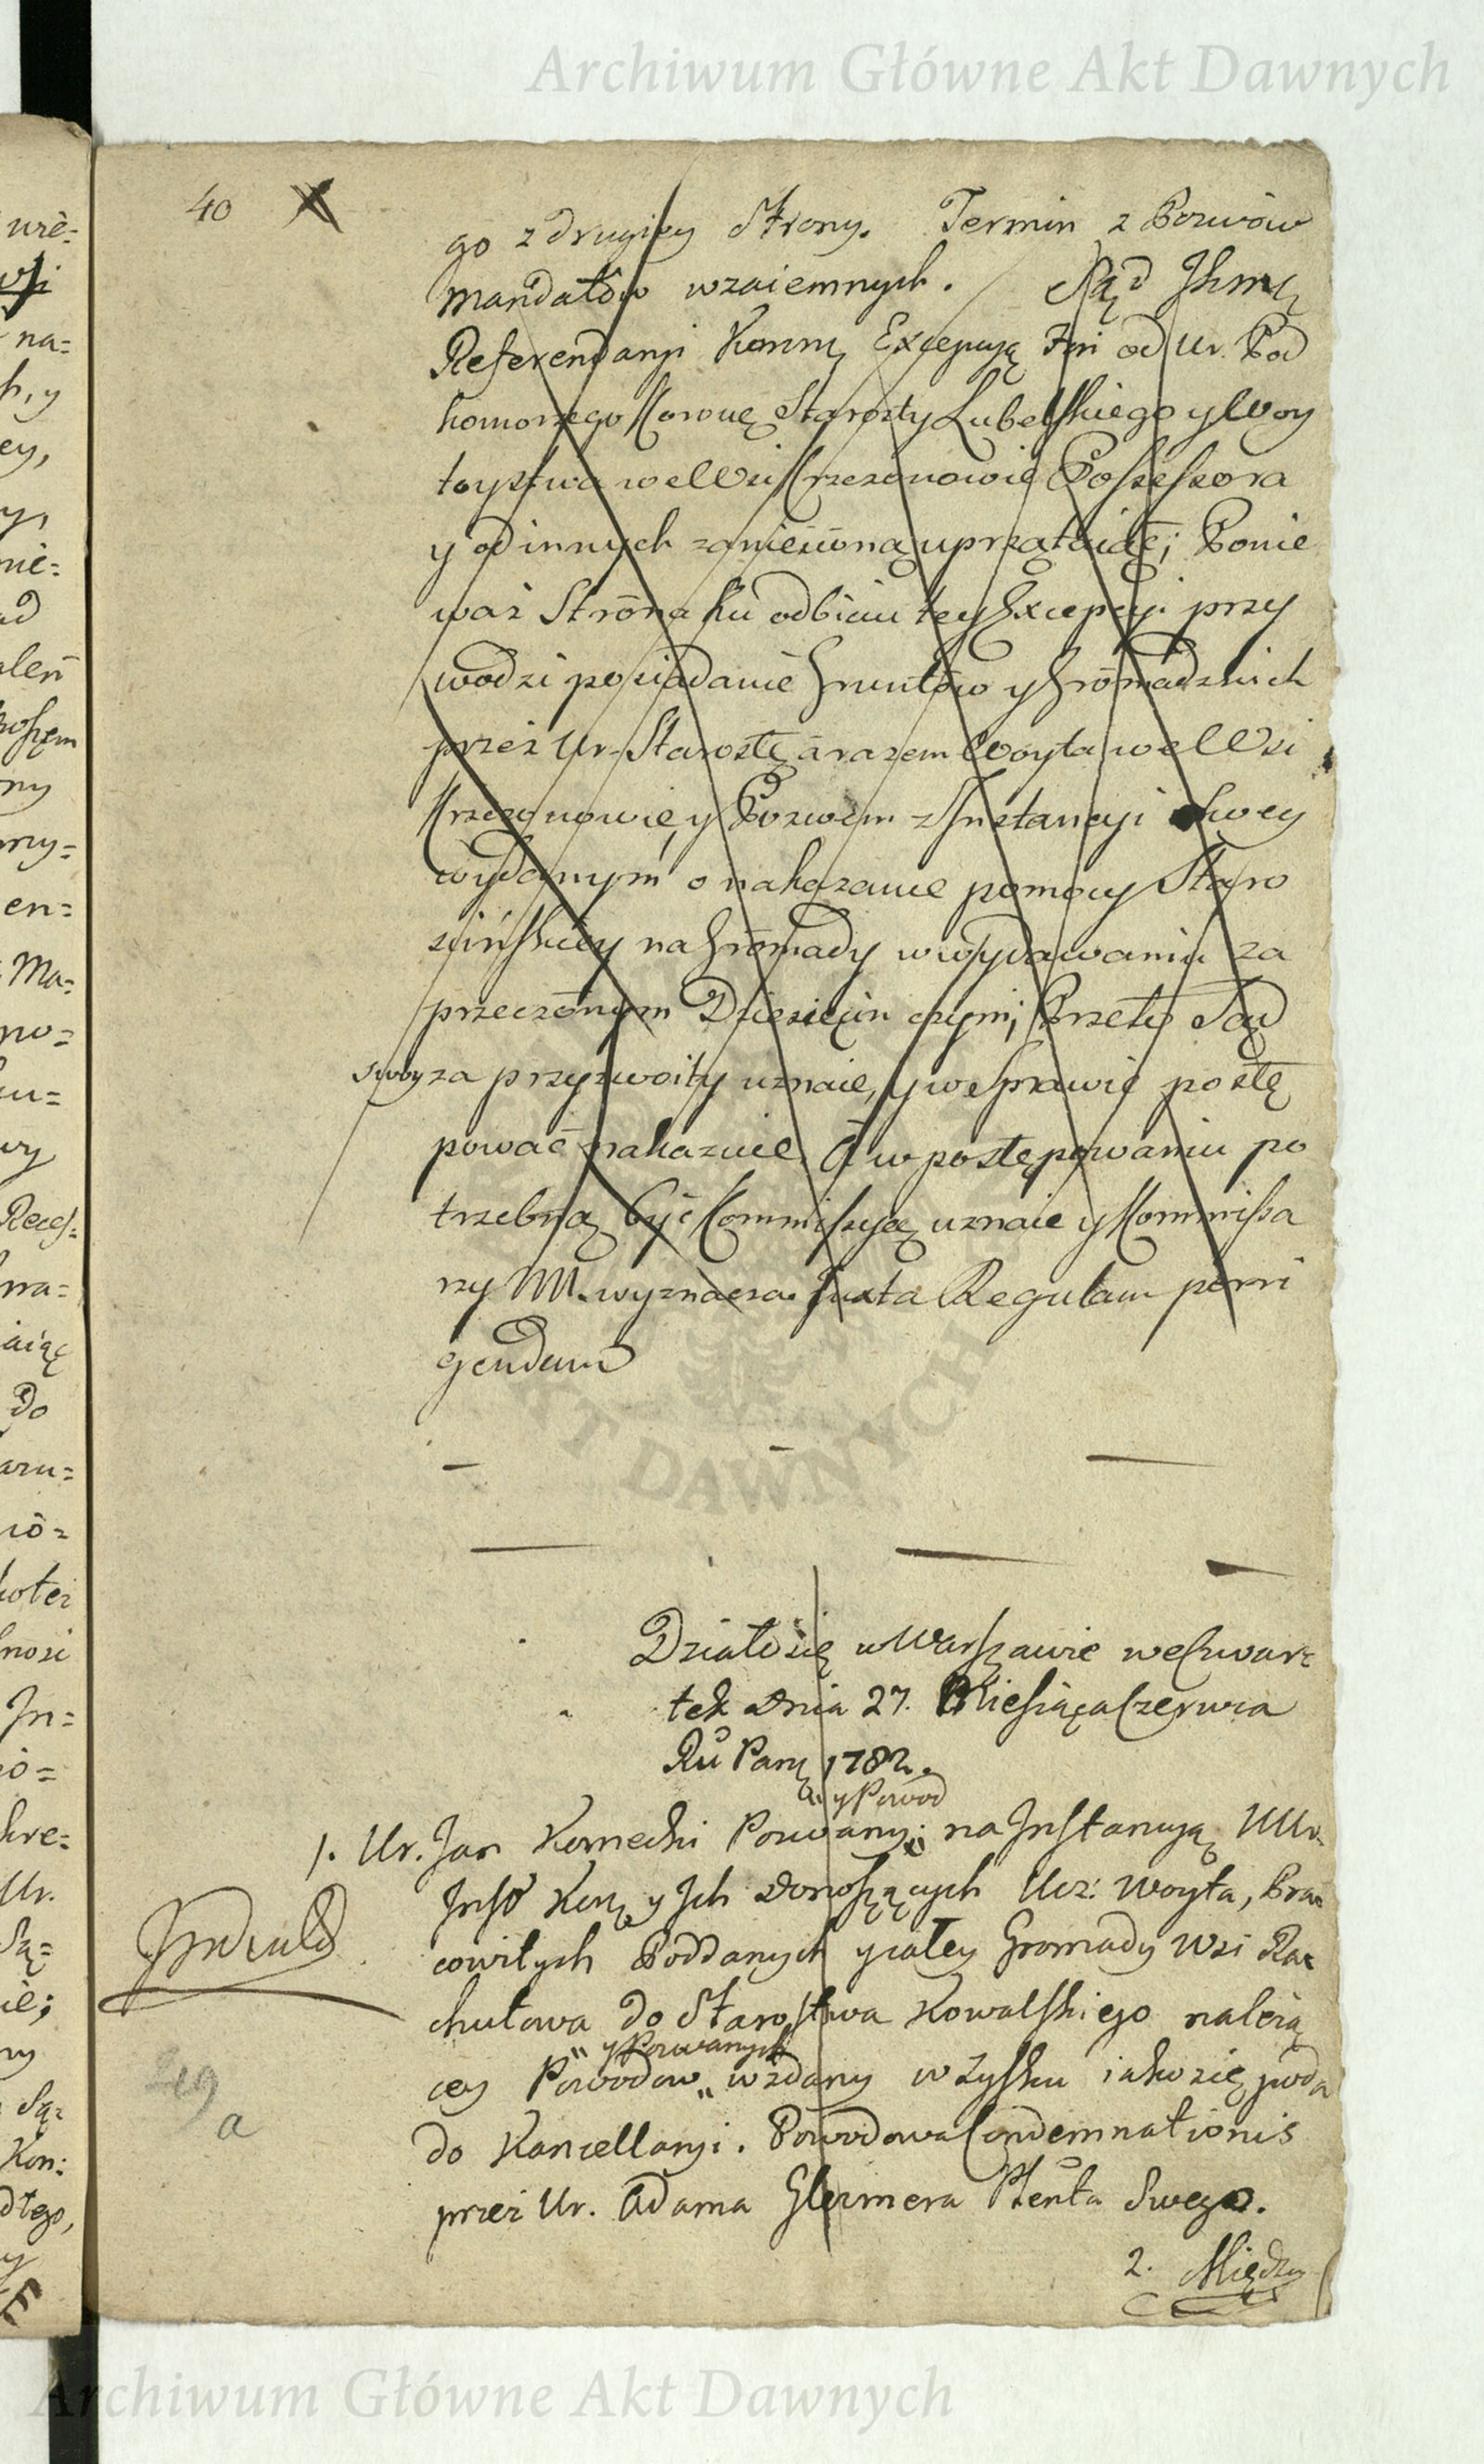 Archiwum Główne Akt Dawnych
40
go z drugiey Strony. Termin z Pozwów
mandatów wzaiemnych. Sąd JKmci
Referendarji Koronney Excepcyą Fori od Ur. Pod
komorzego Koronnego Starosty Lubelskiego y Woy
toystwa we Wsi Krzczonowie Possessora
y od innych zaniesioną uprzątaiąc; Ponie
waż Strona ku odbiciu tey Excepcyi przy
wodzi posiadanie Gruntów y Gromadzkich
przez Ur. Starostę a razem Woyta we Wsi
Krzczonowie, y Pozwem z Instancyi Swey
wydanym o nakazanie pomocy Staro
scińskiey na Gromady w wydawaniu za
przeczonym Dziesięcin czyni; Przeto Sąd
swoy za przyzwoity uznaie, y w Sprawie postę
pować nakazuie. A w postępowaniu po
trzebną być Kommissyą uznaie y Kommissa
rzy NN. wyznacza. Juxta Regulam porri
gendum
Działo się w Warszawie we Czwar
tek dnia 27. Miesiąca Czerwca
Ru Pańz 1782.
y Powod
1. Ur. Jan Kornecki Pozwany; na Instancyą UUr.
Instō Korz y Jch donoszących Ucz: Woyta, Prac
cowitych Poddanych y całey Gromady Wsi Ra
chutowa do Starostwa Kowalskiego należą
y Pozwanych
cey Powodow wzdany w Zysku iako się poda
do Kancellaryi. Powodowa Condemnationis
przez Ur. Adama Glezmera Plenta Swego.
2. Między
219
a
DAWNYCH
Archiwum Główne Akt Dawnych